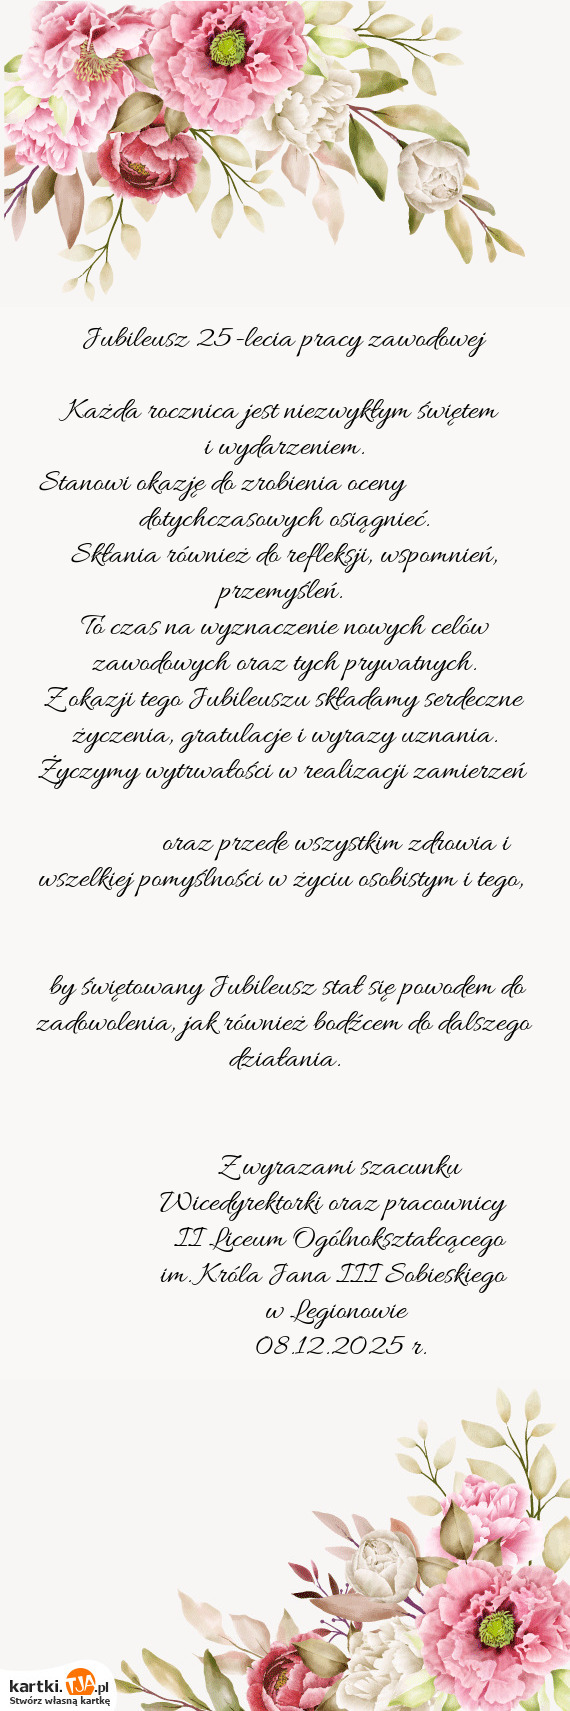 Jubileusz 25-lecia pracy zawodowej
Każda rocznica jest niezwykłym świętem
i wydarzeniem.
Stanowi okazję do zrobienia oceny
dotychczasowych osiągnieć.
Skłania również do refleksji, wspomnień,
przemyśleń.
To czas na wyznaczenie nowych celów
zawodowych oraz tych prywatnych.
Z okazji tego Jubileuszu składamy serdeczne
życzenia, gratulacje i wyrazy uznania.
Życzymy wytrwałości w realizacji zamierzeń
oraz przede wszystkim zdrowia i
wszelkiej pomyślności w życiu osobistym i tego,
by świętowany Jubileusz stał się powodem do
zadowolenia, jak również bodźcem do dalszego
działania.
Z wyrazami szacunku
Wicedyrektorki oraz pracownicy
II Liceum Ogólnokształcącego
im. Króla Jana III Sobieskiego
w Legionowie
08.12.2025 r.
kartki.TJA.pl
Stwórz własną kartkę